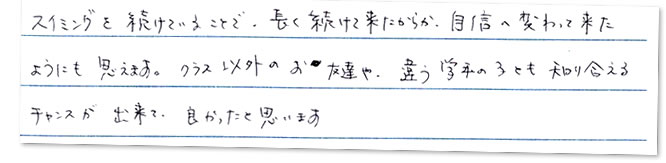 スイミングを続けていることで、長く続けて来たからか、自信へ変わって来た
ようにも思えます。クラス以外のお友達や、違う学年の子とも知り合える
チャンスが出来て、良かったと思います